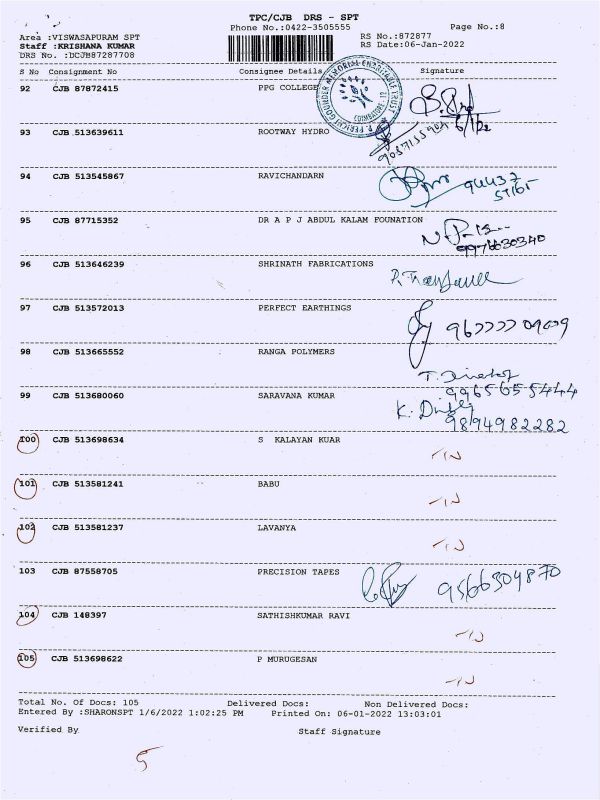 TPC/CJB DRS - SPT
Phone No.:0422-3505555
Page No.:8
Area :VISWASAPURAM SPT
RS No.:872877
Staff :KRISHANA KUMAR
RS Date:06-Jan-2022
DRS No. :DCJB87287708
S No Consignment No Consignee Details Signature
92 CJB 87872415 PPG COLLEGE
6/1/22
93 CJB 513639611 ROOTWAY HYDRO
94 CJB 513545867 RAVICHANDARN
94437
57165
95 CJB 87715352 DR A P J ABDUL KALAM FOUNATION
9976630340
96 CJB 513646239 SHRINATH FABRICATIONS
97 CJB 513572013 PERFECT EARTHINGS
98 CJB 513665552 RANGA POLYMERS
9965655444
99 CJB 513680060 SARAVANA KUMAR
9894982282
100 CJB 513698634 S KALAYAN KUAR
101 CJB 513581241 BABU
102 CJB 513581237 LAVANYA
103 CJB 87558705 PRECISION TAPES 9566304870
104 CJB 148397 SATHISHKUMAR RAVI
105 CJB 513698622 P MURUGESAN
Total No. Of Docs: 105 Delivered Docs: Non Delivered Docs:
Entered By :SHARONSPT 1/6/2022 1:02:25 PM Printed On: 06-01-2022 13:03:01
Verified By Staff Signature
5